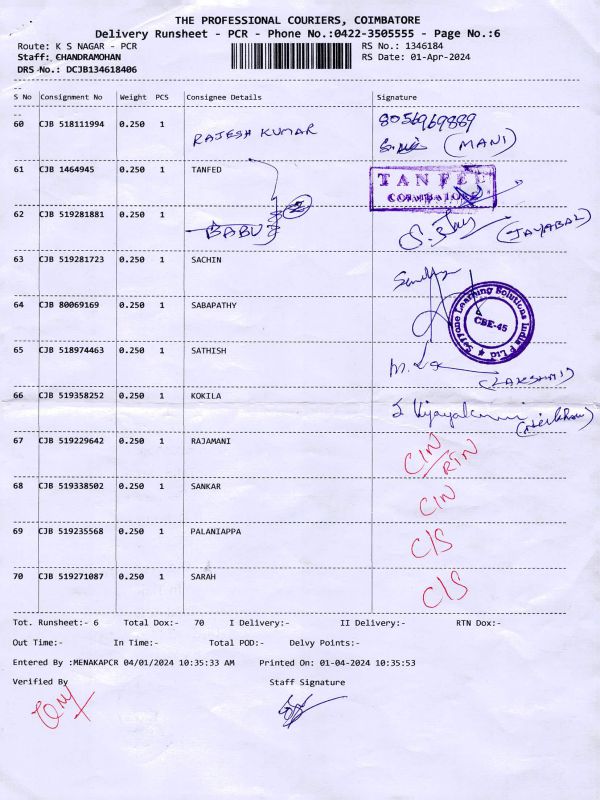 THE PROFESSIONAL COURIERS, COIMBATORE
Delivery Runsheet - PCR - Phone No.:0422-3505555 - Page No.:6
Route: K S NAGAR - PCR RS No.: 1346184
Staff: CHANDRAMOHAN RS Date: 01-Apr-2024
DRS No.: DCJB134618406
S No Consignment No Weight PCS Consignee Details Signature
60 CJB 518111994 0.250 1 RAJESH KUMAR 8056969889
(MANI)
61 CJB 1464945 0.250 1 TANFED TANFED
COIMBATORE
62 CJB 519281881 0.250 1 BABU 2 (JAYABAL)
63 CJB 519281723 0.250 1 SACHIN
64 CJB 80069169 0.250 1 SABAPATHY Learning Solutions India P Ltd
CBE-45
65 CJB 518974463 0.250 1 SATHISH (LAKSHMI)
66 CJB 519358252 0.250 1 KOKILA
67 CJB 519229642 0.250 1 RAJAMANI CIN/RTN
68 CJB 519338502 0.250 1 SANKAR CIN
69 CJB 519235568 0.250 1 PALANIAPPA C/S
70 CJB 519271087 0.250 1 SARAH C/S
Tot. Runsheet:- 6 Total Dox:- 70 I Delivery:- II Delivery:- RTN Dox:-
Out Time:- In Time:- Total POD:- Delvy Points:-
Entered By :MENAKAPCR 04/01/2024 10:35:33 AM Printed On: 01-04-2024 10:35:53
Verified By Staff Signature